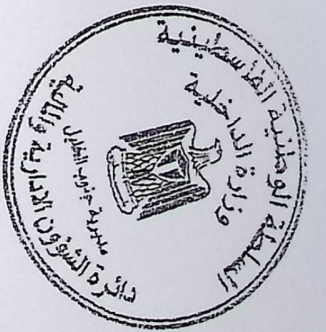 السلطة الوطنية الفلسطينية
وزارة الداخلية
مديرية جنوب الخليل
دائرة الشؤون الادارية والمالية